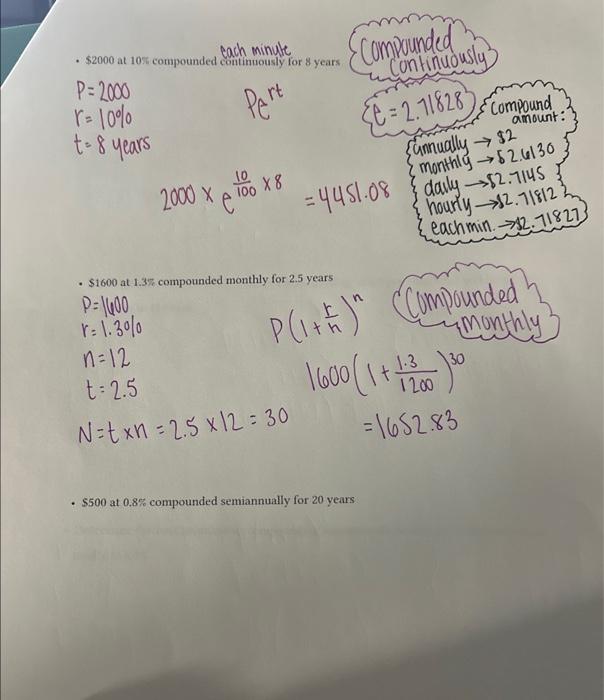 each minute
• $2000 at 10% compounded continuously for 8 years
Compounded
Continuously
P=2000
r=10%
t=8 years
Pe^rt
e=2.71828
Compound
amount:
annually → $2
monthly → $2.6130
daily → $2.7145
hourly → $2.71812
each min. → $2.71827
2000 × e^(10/100 × 8) = 4451.08
• $1600 at 1.3% compounded monthly for 2.5 years
P=1600
r=1.3%
n=12
t=2.5
P(1+r/n)^n
Compounded
monthly
1600(1+1.3/1200)^30
N=t×n=2.5×12=30
=1652.83
• $500 at 0.8% compounded semiannually for 20 years